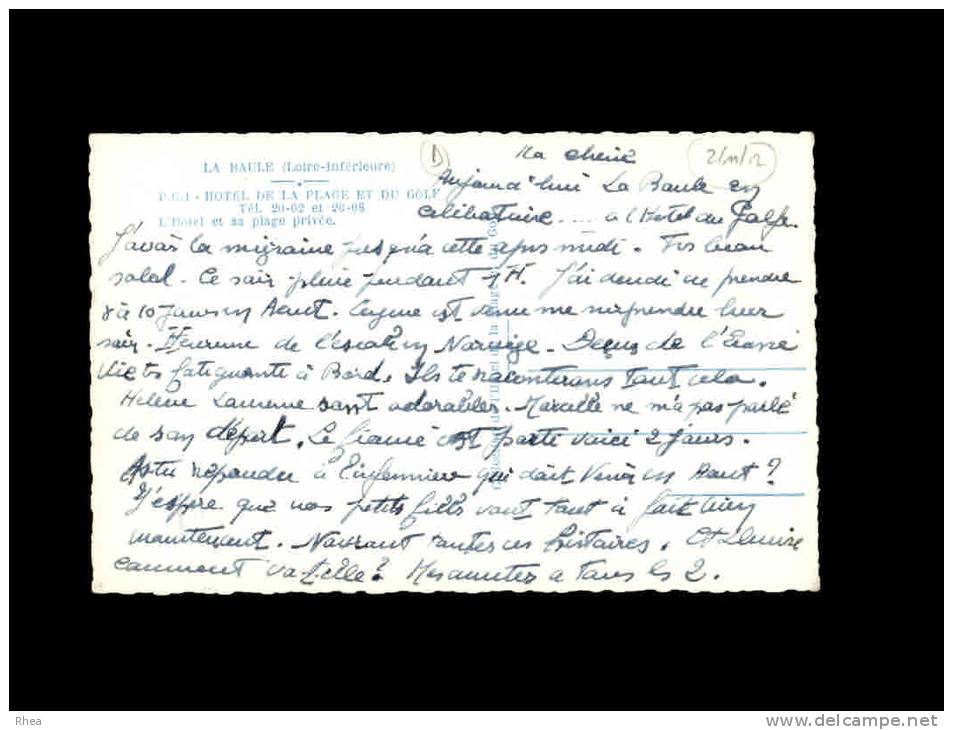 Ma chérie
2/11/12
LA BAULE (Loire-Inférieure)
P.C.I - HOTEL DE LA PLAGE ET DU GOLF
Tél. 20-02 et 20-05
L'Hotel et sa plage privée.
Aujourd'hui La Baule en
célibataire.... a l'Hotel du Golfe.
J'avais la migraine jusqu'a cette apres midi. Tres beau
soleil. Ce soir pluie pendant 1 H. J'ai decidé de prendre
8 à 10 jours en Aout. est venu me surprendre hier
soir. Heureuse de l'escale en Norvège. Deçus de l'
Vie tres fatiguante à Bord. Ils te raconterons tout cela.
Helène sont adorables. Marcelle ne m'a pas parlé
de son départ. Le fiancé est parti voici 2 jours.
As tu repondu à l'infermiere qui doit venir en Aout?
J'espère que nos petits fills vont tout à fait bien
maintenant. Navrant toutes ces histoires. Et Denise
comment va-t-elle? Mes amities a tous les 2.
Rhea
www.delcampe.net